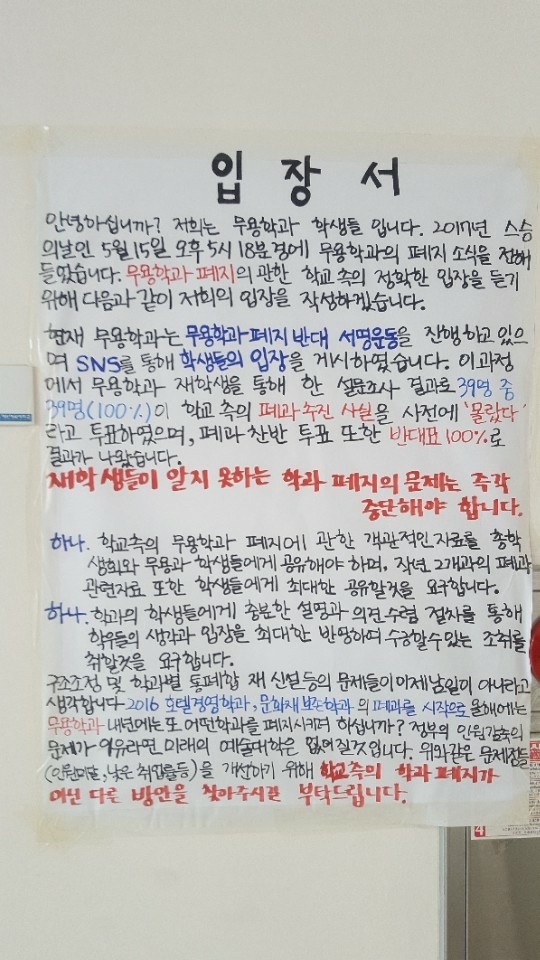 입장서
안녕하십니까? 저희는 무용학과 학생들 입니다. 2017년 스승
의날인 5월 15일 오후 5시 18분경에 무용학과의 폐지 소식을 전해
들었습니다. 무용학과 폐지의 관한 학교측의 정확한 입장을 듣기
위해 다음과 같이 저희의 입장을 작성하겠습니다.
현재 무용학과는 무용학과 폐지 반대 서명운동을 진행하고 있으
며 SNS를 통해 학생들의 입장을 게시하였습니다. 이과정
에서 무용학과 재학생을 통해 한 설문조사 결과로 39명 중
39명(100%)이 학교 측의 폐과 촉진 사실을 사전에 '몰랐다'
라고 투표하였으며, 폐과 찬반 투표 또한 반대표 100%로
결과가 나왔습니다.
재학생들이 알지 못하는 학과 폐지의 문제는 즉각
중단해야 합니다.
하나. 학교측의 무용학과 폐지에 관한 객관적인 자료를 총학
생회와 무용과 학생들에게 공유해야 하며, 작년 2개과의 폐과
관련자료 또한 학생들에게 최대한 공유할것을 요구합니다.
하나. 학과의 학생들에게 충분한 설명과 의견수렴 절차를 통해
학우들의 생각과 입장을 최대한 반영하며 수긍할수있는 조취를
취할것을 요구합니다.
구조조정 및 학과별 통폐합 재 신설등의 문제들이 이제 남일이 아니라고
생각합니다 2016 호텔경영학과, 문화재보존학과의 폐과를 시작으로 올해에는
무용학과 내년에는 또 어떤학과를 폐지시키려 하십니까? 정부의 인원감축의
문제가 이유라면 미래의 예술대학은 없어질것입니다. 위와같은 문제점들
(인원미달, 낮은 취업률등)을 개선하기 위해 학교측의 학과 폐지가
아닌 다른 방안을 찾아주시길 부탁드립니다.
4